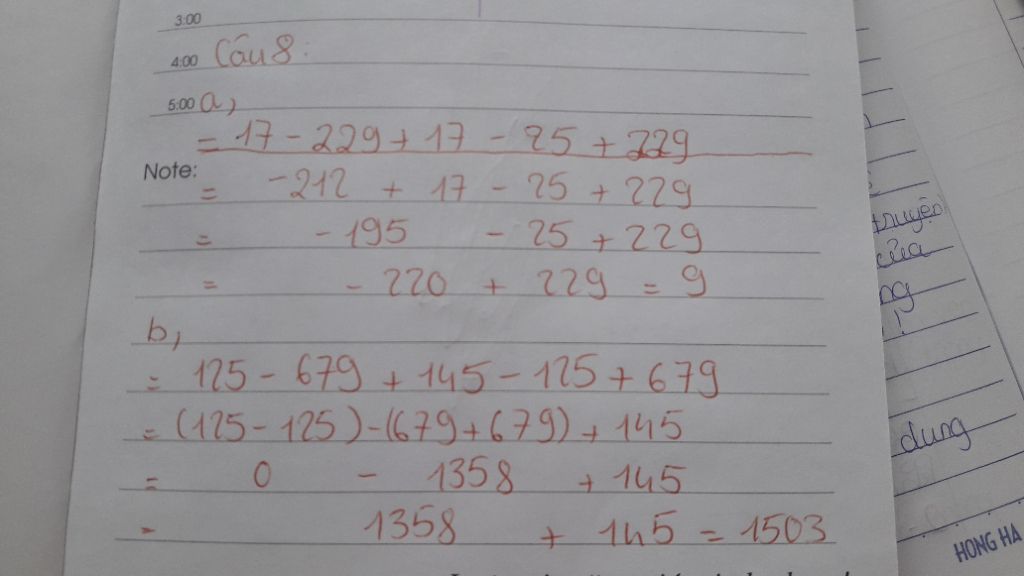 3:00
4:00 Câu 8:
5:00 a,
= 17 - 229 + 17 - 25 + 229
Note:
= -212 + 17 - 25 + 229
= - 195 - 25 + 229
= - 220 + 229 = 9
b,
= 125 - 679 + 145 - 125 + 679
= (125 - 125) - (679 + 679) + 145
= 0 - 1358 + 145
= 1358 + 145 = 1503
truyện
của
ng
dung
HONG HA